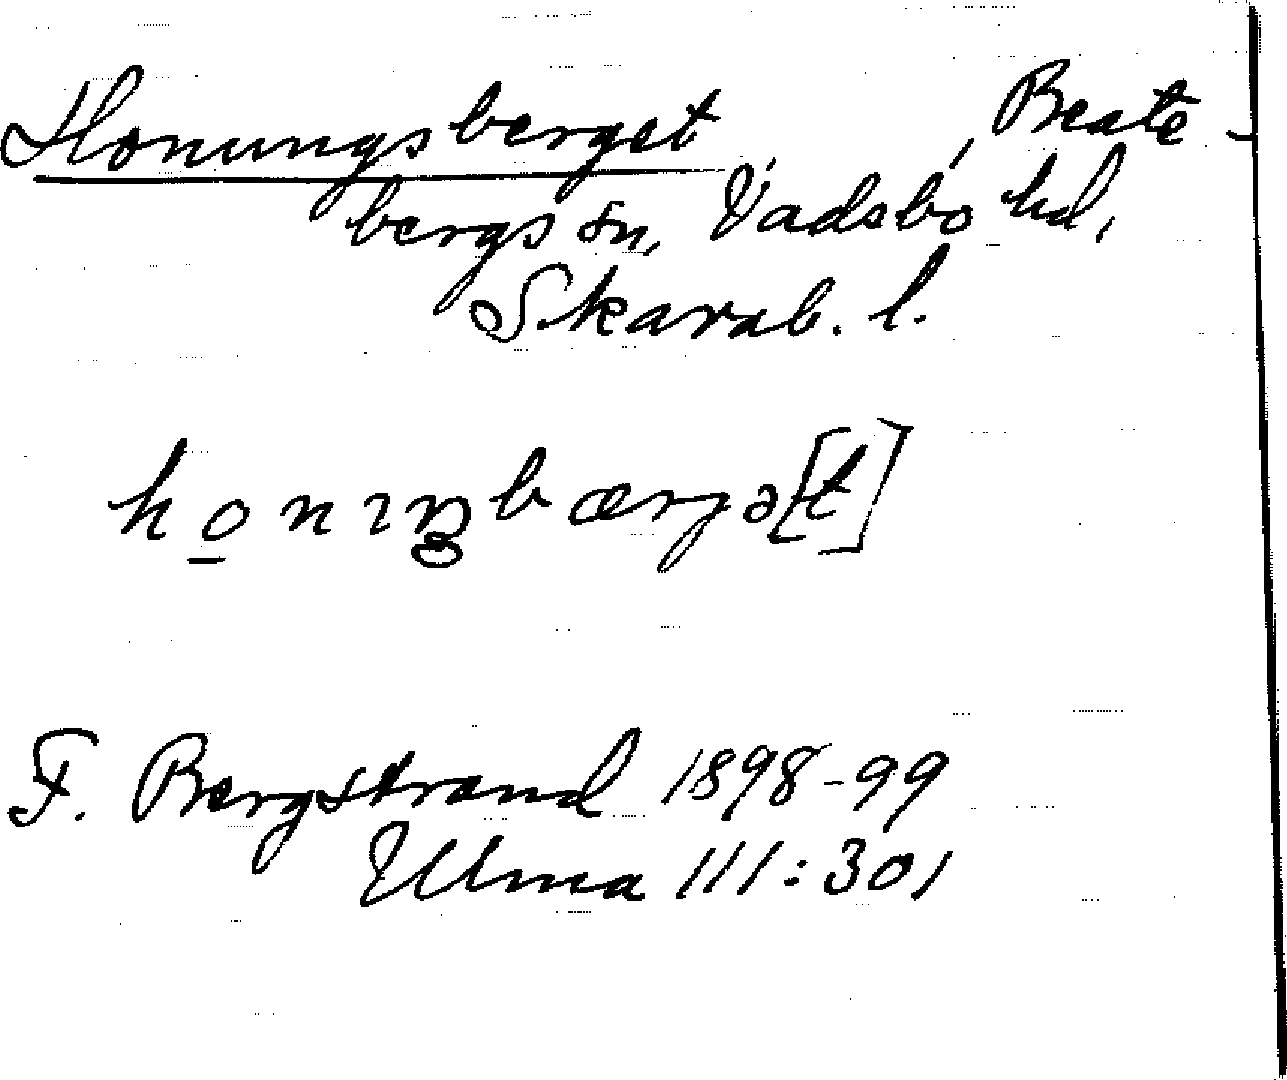 Honungsberget, Beate-
bergs sn, Vadsbo hd,
Skarab. l.
ho̲nɪŋbærjə[t]
F. Bergstrand 1898-99
Ulma 111:301